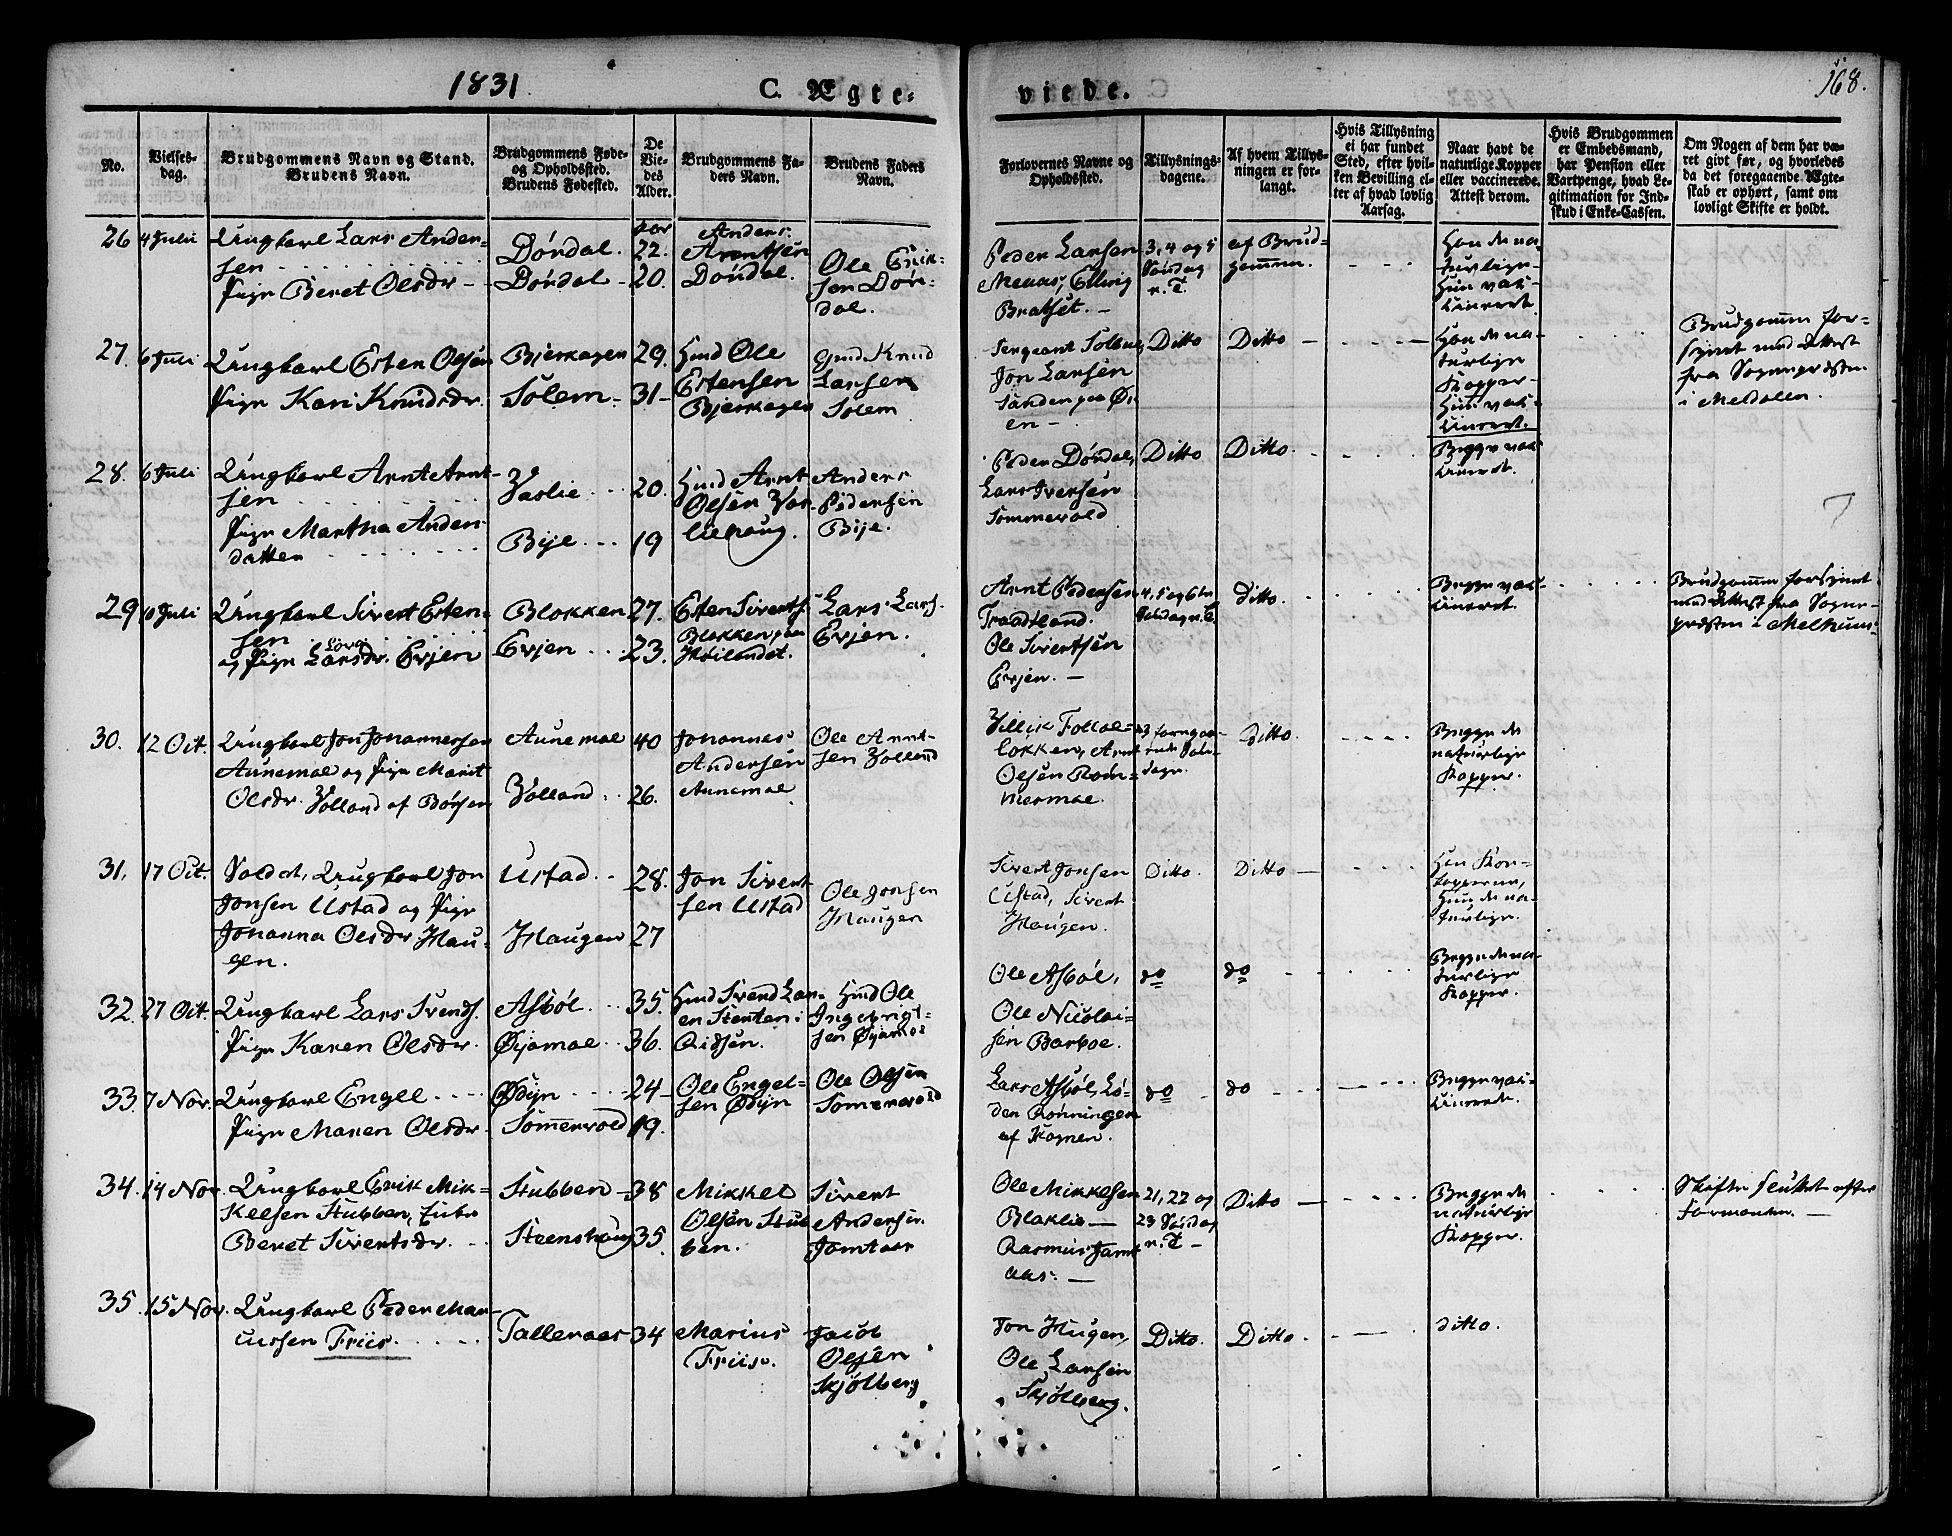 1831
C. Ægte-
viede.
168.
No.
Vielses-
dag.
Brudgommens Navn og Stand.
Brudens Navn.
Brudgommens Føde-
og Opholdssted.
Brudens Fødested.
De
Vie-
des
Alder.
Brudgommens Fa-
ders Navn.
Brudens Faders
Navn.
Forlovernes Navne og
Opholdssted.
Tillysnings-
dagene.
Af hvem Tillys-
ningen er for-
langt.
Hvis Tillysning
ei har fundet
Sted, efter hvil-
ken Bevilling el-
ler af hvad lovlig
Aarsag.
Naar havt de
naturlige Kopper
eller vaccinerede.
Attest derom.
Hvis Brudgommen
er Embedsmand,
har Pension eller
Vartpenge, hvad Le-
gitimation for Ind-
skud i Enke-Cassen.
Om Nogen af dem har væ-
ret givt før, og hvorledes
da det foregaaende Ægte-
skab er ophørt, samt om
lovligt Skifte er holdt.
26
4 Juli
Ungkarl Lars Ander-
sen
Pige Beret Olsdr
Dørdal.
Dørdal
22.
20.
Anders
Arntsen
Dørdal.
Ole Erik-
sen Dør-
dal.
Peder Larsen
Elling
Bratset.
3, 4 og 5
Søndag
n. T.
af Brud-
gommen.
Han de na-
turlige
Hun vac-
cineret.
27.
6 Juli
Ungkarl Esten Olsen
Pige Kari Knudsdr.
Bjerkagen
Solem
29.
31
Hmd Ole
Estensen
Bjerkagen
Gmd Knud
Larsen
Solem
Sergeant Solbue,
Jon Larsen
Sanden paa Ø-
en
Ditto
Ditto
Han de na-
turlige
Kopper
Hun vac-
cineret.
Brudgommen for-
synet med Attest
fra Sognepræsten
i Meldalen.
28.
6 Juli
Ungkarl Arnt Arnt-
sen
Pige Martha Anders
datter
Vaslie
Bije
20.
19
Hmd Arnt
Olsen Vas-
liehaug.
Anders
Pedersen
Bije.
Peder Dørdal,
Lars Iversen
Sommervold
Ditto
Ditto.
Begge vac-
cineret.
29
10 Juli
Ungkarl Sivert Esten-
sen
og Pige Larsdr. Evjen
Blokken
Evjen
27.
23.
Esten Siverts.
Blokken paa
Høilandet.
Lars Lars.
Evjen.
Arnt Pedersen
Ole Sivertsen
Evjen.
4, 5 og 6te
Søndag n. T.
Ditto.
Begge vac-
cineret.
Brudgommen forsynet
med Attest fra Sogne-
præsten i Melhuus
30.
12 Oct.
Ungkarl Jon Johannessen
Aunemoe og Pige Marit
Olsdr. Volland af Børsen
Aunemoe
Volland
40
26.
Johannes
Andersen
Aunemoe
Ole Arnt-
sen Volland
løkken, Arnt
Olsen Rom-
mesmoe.
3 foregaa-
ende Søn-
dage.
Ditto.
Begge de
naturlige
Kopper.
31.
17 Oct.
Soldat, Ungkarl Jon
Jonsen Ustad og Pige
Johanna Olsdr Hau-
gen.
Ustad
Haugen
28.
27
Jon Sivert
sen Ustad
Ole Jonsen
Haugen
Sivert Jonsen
Ustad, Sivert
Haugen.
Ditto.
Ditto
Han Koe-
kopperne,
Hun de na-
turlige.
32.
27 Oct.
Ungkarl Lars Svends.
Pige Karen Olsdr.
Asbøl
Øyamoe
35.
36.
Hmd Svend Lar-
en Stenten i
Ridsen.
Hmd Ole
Ingebrigt-
sen Øyamoe
Ole Asbøl,
Ole Nicolai-
sen Barboe.
do
do
Begge de na-
turlige
Kopper.
33
7 Nov.
Ungkarl Engel
Pige Maren Olsdr.
Ødyn
Sommervold
24
19.
Ole Engel-
sen Ødyn
Ole Olsen
Somervold
Lars Asbøl, Lø-
den Rønningen
af Hognen.
do
do
Begge vac-
cinerede.
34.
14 Nov.
Ungkarl Erik Mik-
kelsen Stubben, Enke
Beret Sivertsdr.
Stubben
Steenshaug
38
35.
Mikkel
Olsen Stub
ben.
Sivert
Andersen
Jamtaas
Ole Mikkelsen
Blaklie
Rasmus Jamt
aas.
21, 22 og
23 Søndag
n. T
Ditto
Begge de
naturlige
Kopper.
Skifte sluttet efter
Formanden.
35.
15 Nov.
Ungkarl Peder Mar-
cussen Friis.
Talleraas
34
Marius
Friis.
Jacob
Olsen
Skjølberg
Jon Hugen,
Ole Larsen
Skjølberg.
Ditto.
Ditto.
ditto.